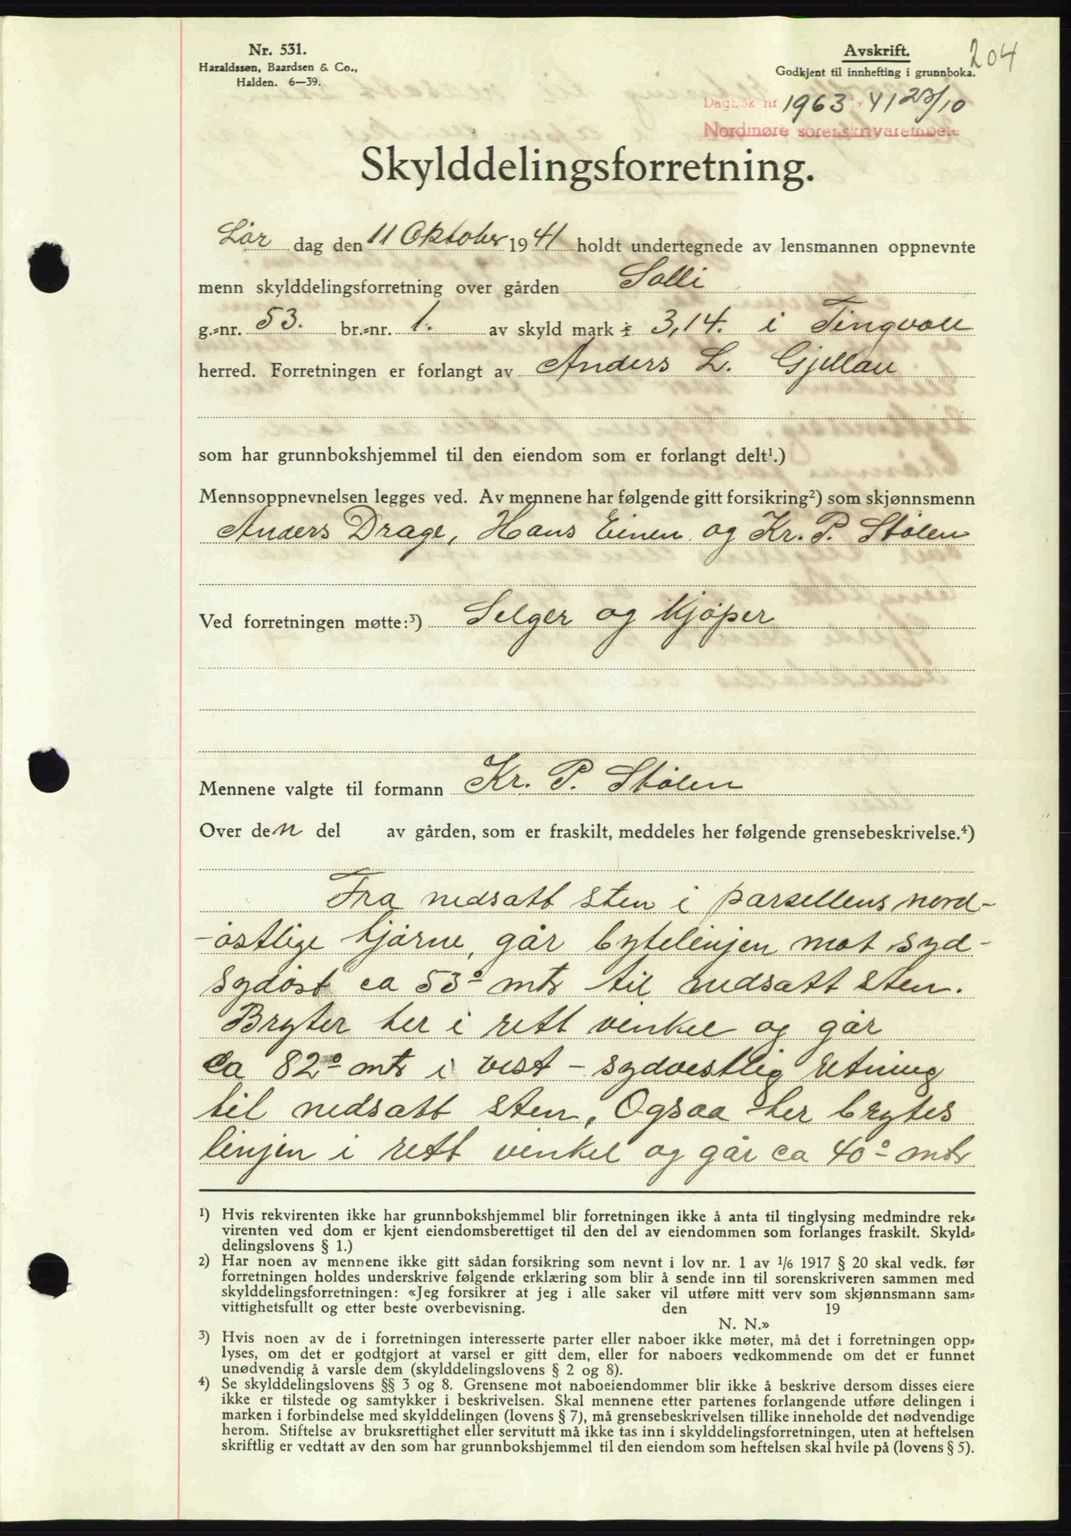 Nr. 531.
Haraldssøn, Baardsen & Co.,
Halden. 6—39.
Avskrift.
Godkjent til innhefting i grunnboka.
204
Dagbok nr 1963 41 23/10
Nordmøre sorenskriverembete
Skylddelingsforretning.
Lør dag den 11 Oktober 1941 holdt undertegnede av lensmannen oppnevnte
menn skylddelingsforretning over gården Solli
g.=nr. 53. br.=nr. 1. av skyld mark 3,14. i Tingvoll
herred. Forretningen er forlangt av Anders L. Gjellan
som har grunnbokshjemmel til den eiendom som er forlangt delt¹.)
Mennsoppnevnelsen legges ved. Av mennene har følgende gitt forsikring²) som skjønnsmenn
Anders Drage, Hans Einen og Kr. P. Stølen
Ved forretningen møtte:³) Selger og Kjøper
Mennene valgte til formann Kr. P. Stølen
Over den del av gården, som er fraskilt, meddeles her følgende grensebeskrivelse.⁴)
Fra nedsatt sten i parsellens nord-
-østlige hjørne, går bytelinjen mot syd-
sydøst ca 53⁰ mtr til nedsatt sten.
Bryter her i rett vinkel og går
ca 82⁰ mtr i vest - sydvestlig retning
til nedsatt sten, Ogsaa her brytes
linjen i rett vinkel og går ca 40⁰ mtr
¹) Hvis rekvirenten ikke har grunnbokshjemmel blir forretningen ikke å anta til tinglysing medmindre rek=
virenten ved dom er kjent eiendomsberettiget til den del av eiendommen som forlanges fraskilt. Skyld=
delingslovens § 1.)
²) Har noen av mennene ikke gitt sådan forsikring som nevnt i lov nr. 1 av 1/6 1917 § 20 skal vedk. før
forretningen holdes underskrive følgende erklæring som blir å sende inn til sorenskriveren sammen med
skylddelingsforretningen: «Jeg forsikrer at jeg i alle saker vil utføre mitt verv som skjønnsmann sam=
vittighetsfullt og etter beste overbevisning. den 19
N. N.»
³) Hvis noen av de i forretningen interesserte parter eller naboer ikke møter, må det i forretningen opp=
lyses, om det er godtgjort at varsel er gitt dem, eller for naboers vedkommende om det er funnet
unødvendig å varsle dem (skylddelingslovens § 2 og 8).
⁴) Se skylddelingslovens §§ 3 og 8. Grensene mot naboeiendommer blir ikke å beskrive dersom disses eiere
ikke er tilstede og samtykker i beskrivelsen. Skal mennene etter partenes forlangende utføre delingen i
marken i forbindelse med skylddelingen (lovens § 7), må grensebeskrivelsen tillike inneholde det nødvendige
herom. Stiftelse av bruksrettighet eller servitutt må ikke tas inn i skylddelingsforretningen, uten at heftelsen
skriftlig er vedtatt av den som har grunnbokshjemmel til den eiendom som heftelsen skal hvile på (lovens § 5).